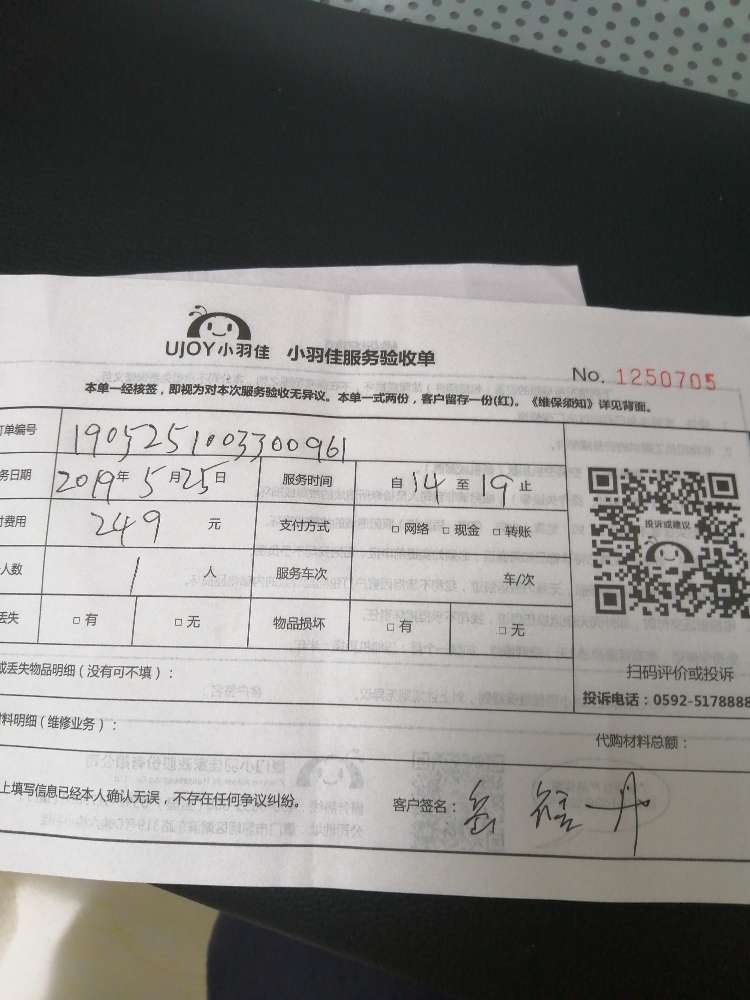 UJOY小羽佳 小羽佳服务验收单
No. 1250705
本单一经核签，即视为对本次服务验收无异议。本单一式两份，客户留存一份(红)。《维保须知》详见背面。
单编号 1905251003300961
务日期 2019年5月25日 服务时间 自14至19止
费用 249 元 支付方式 □ 网络 □ 现金 □ 转账
人数 1 人 服务车次 车/次
丢失 □ 有 □ 无 物品损坏 □ 有 □ 无
投诉或建议
扫码评价或投诉
投诉电话：0592-5178888
或丢失物品明细（没有可不填）：
料明细（维修业务）： 代购材料总额：
上填写信息已经本人确认无误，不存在任何争议纠纷。 客户签名：